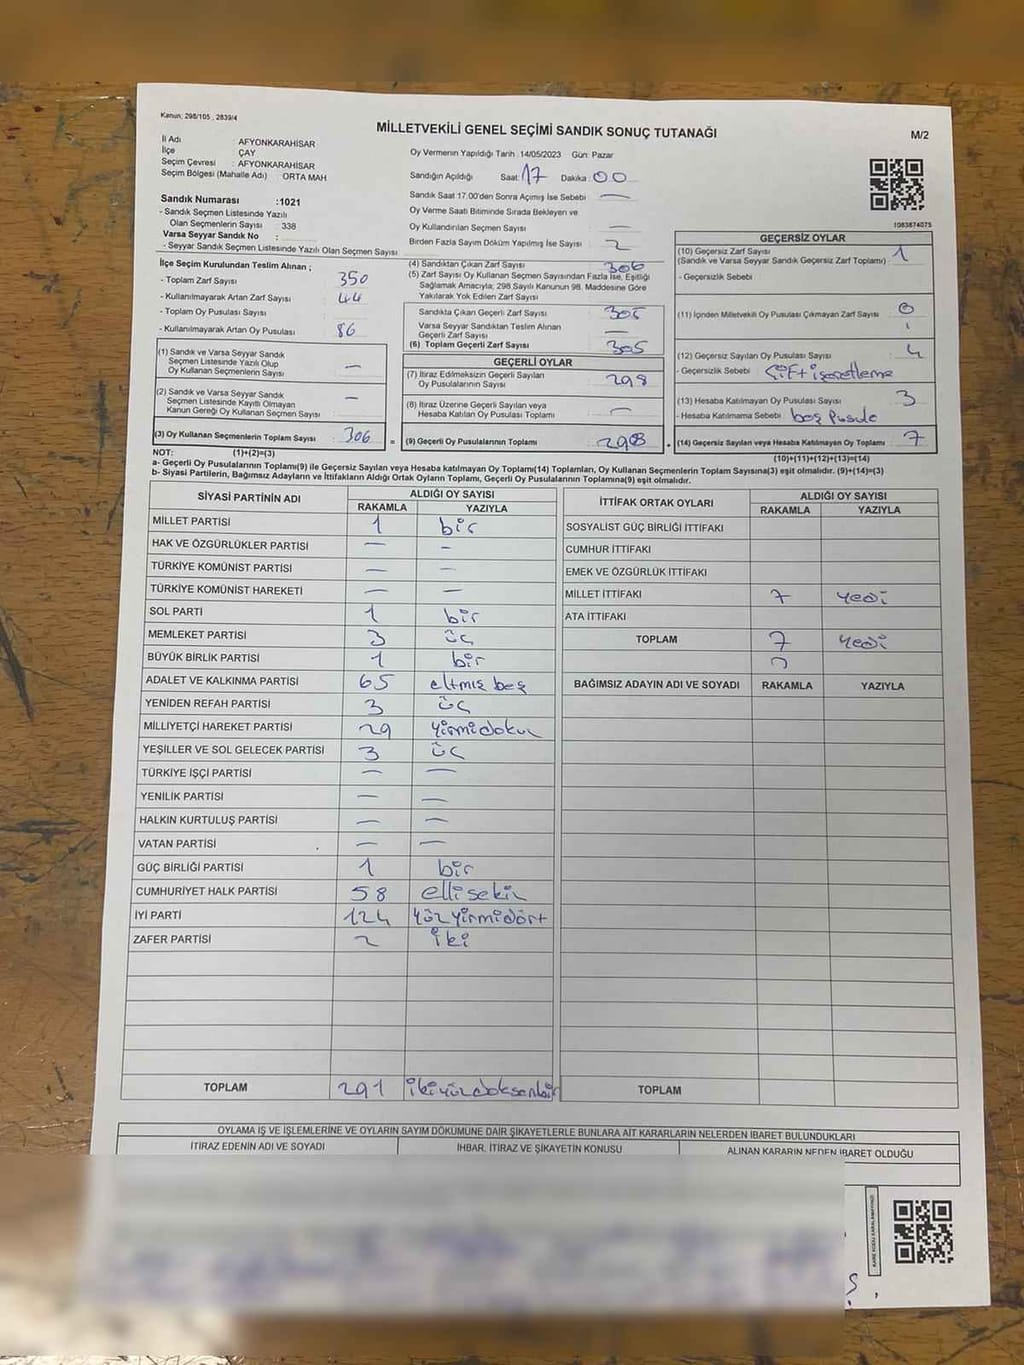 Kanun: 298/105 , 2839/4
MİLLETVEKİLİ GENEL SEÇİMİ SANDIK SONUÇ TUTANAĞI
M/2
İl Adı : AFYONKARAHİSAR
İlçe : ÇAY
Seçim Çevresi : AFYONKARAHİSAR
Seçim Bölgesi (Mahalle Adı) ORTA MAH
Sandık Numarası :1021
- Sandık Seçmen Listesinde Yazılı
Olan Seçmenlerin Sayısı : 338
Varsa Seyyar Sandık No :
- Seyyar Sandık Seçmen Listesinde Yazılı Olan Seçmen Sayısı
İlçe Seçim Kurulundan Teslim Alınan ;
- Toplam Zarf Sayısı 350
- Kullanılmayarak Artan Zarf Sayısı 44
- Toplam Oy Pusulası Sayısı :
- Kullanılmayarak Artan Oy Pusulası 86
(1) Sandık ve Varsa Seyyar Sandık
Seçmen Listesinde Yazılı Olup
Oy Kullanan Seçmenlerin Sayısı —
(2) Sandık ve Varsa Seyyar Sandık
Seçmen Listesinde Kayıtlı Olmayan
Kanun Gereği Oy Kullanan Seçmen Sayısı —
(3) Oy Kullanan Seçmenlerin Toplam Sayısı 306 =
Oy Vermenin Yapıldığı Tarih :14/05/2023 Gün: Pazar
Sandığın Açıldığı Saat: 17 Dakika: 00
Sandık Saat 17.00'den Sonra Açımış İse Sebebi —
Oy Verme Saati Bitiminde Sırada Bekleyen ve
Oy Kullandırılan Seçmen Sayısı —
Birden Fazla Sayım Döküm Yapılmış İse Sayısı 2
(4) Sandıktan Çıkan Zarf Sayısı 306
(5) Zarf Sayısı Oy Kullanan Seçmen Sayısından Fazla İse, Eşitliği
Sağlamak Amacıyla; 298 Sayılı Kanunun 98. Maddesine Göre
Yakılarak Yok Edilen Zarf Sayısı
Sandıkta Çıkan Geçerli Zarf Sayısı 305
Varsa Seyyar Sandıktan Teslim Alınan
Geçerli Zarf Sayısı —
(6) Toplam Geçerli Zarf Sayısı 305
GEÇERLİ OYLAR
(7) İtiraz Edilmeksizin Geçerli Sayılan
Oy Pusulalarının Sayısı 298
(8) İtiraz Üzerine Geçerli Sayılan veya
Hesaba Katılan Oy Pusulası Toplamı —
(9) Geçerli Oy Pusulalarının Toplamı 298
1083874075
GEÇERSİZ OYLAR
(10) Geçersiz Zarf Sayısı 1
(Sandık ve Varsa Seyyar Sandık Geçersiz Zarf Toplamı)
- Geçersizlik Sebebi
(11) İçinden Milletvekili Oy Pusulası Çıkmayan Zarf Sayısı 0
(12) Geçersiz Sayılan Oy Pusulası Sayısı 4
- Geçersizlik Sebebi Çift işaretleme
(13) Hesaba Katılmayan Oy Pusulası Sayısı 3
- Hesaba Katılmama Sebebi boş Pusula
(14) Geçersiz Sayılan veya Hesaba Katılmayan Oy Toplamı 7
NOT: (1)+(2)=(3)
(10)+(11)+(12)+(13)=(14)
a- Geçerli Oy Pusulalarının Toplamı(9) ile Geçersiz Sayılan veya Hesaba katılmayan Oy Toplamı(14) Toplamları, Oy Kullanan Seçmenlerin Toplam Sayısına(3) eşit olmalıdır. (9)+(14)=(3)
b- Siyasi Partilerin, Bağımsız Adayların ve İttifakların Aldığı Ortak Oyların Toplamı, Geçerli Oy Pusulalarının Toplamına(9) eşit olmalıdır.
SİYASİ PARTİNİN ADI ALDIĞI OY SAYISI
RAKAMLA YAZIYLA
MİLLET PARTİSİ 1 bir
HAK VE ÖZGÜRLÜKLER PARTİSİ — —
TÜRKİYE KOMÜNİST PARTİSİ — —
TÜRKİYE KOMÜNİST HAREKETİ — —
SOL PARTİ 1 bir
MEMLEKET PARTİSİ 3 üç
BÜYÜK BİRLİK PARTİSİ 1 bir
ADALET VE KALKINMA PARTİSİ 65 altmış beş
YENİDEN REFAH PARTİSİ 3 üç
MİLLİYETÇİ HAREKET PARTİSİ 29 yirmidokuz
YEŞİLLER VE SOL GELECEK PARTİSİ 3 üç
TÜRKİYE İŞÇİ PARTİSİ — —
YENİLİK PARTİSİ — —
HALKIN KURTULUŞ PARTİSİ — —
VATAN PARTİSİ — —
GÜÇ BİRLİĞİ PARTİSİ 1 bir
CUMHURİYET HALK PARTİSİ 58 ellisekiz
İYİ PARTİ 124 yüzyirmidört
ZAFER PARTİSİ 2 iki
TOPLAM 291 ikiyüzdoksanbir
İTTİFAK ORTAK OYLARI ALDIĞI OY SAYISI
RAKAMLA YAZIYLA
SOSYALİST GÜÇ BİRLİĞİ İTTİFAKI
CUMHUR İTTİFAKI
EMEK VE ÖZGÜRLÜK İTTİFAKI
MİLLET İTTİFAKI 7 yedi
ATA İTTİFAKI
TOPLAM 7 yedi
BAĞIMSIZ ADAYIN ADI VE SOYADI RAKAMLA YAZIYLA
TOPLAM
OYLAMA İŞ VE İŞLEMLERİNE VE OYLARIN SAYIM DÖKÜMÜNE DAİR ŞİKAYETLERLE BUNLARA AİT KARARLARIN NELERDEN İBARET BULUNDUKLARI
İTİRAZ EDENİN ADI VE SOYADI İHBAR, İTİRAZ VE ŞİKAYETİN KONUSU ALINAN KARARIN NEDEN İBARET OLDUĞU